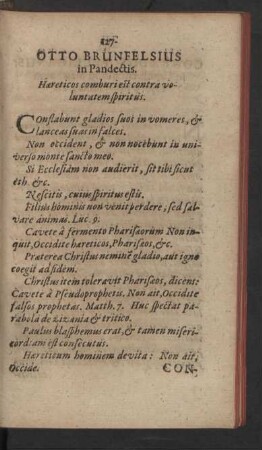 127.
OTTO BRUNFELSIUS
in Pandectis.
Hæreticos comburi est contra vo-
luntatem spiritus.
Conflabunt gladios suos in vomeres, &
lanceas suas in falces.
Non occident, & non nocebunt in uni-
verso monte sancto meo.
Si Ecclesiam non audierit, sit tibi sicut
eth. &c.
Nescitis, cuius spiritus estis.
Filius hominis non venit perdere, sed sal-
vare animas. Luc. 9.
Cavete à fermento Pharisæorum Non in-
quit, Occidite hæreticos, Pharisæos, &c.
Præterea Christus neminẽ gladio, aut igne
coegit ad fidem.
Christus item toleravit Pharisæos, dicens:
Cavete à Pseudoprophetis. Non ait, Occidite
falsos prophetas. Matth. 7. Huc spectat pa-
rabola de Zizania & tritico.
Paulus blasphemus erat, & tamen miseri-
cordiam est consecutus.
Hæreticum hominem devita: Non ait,
Occide.
CON-